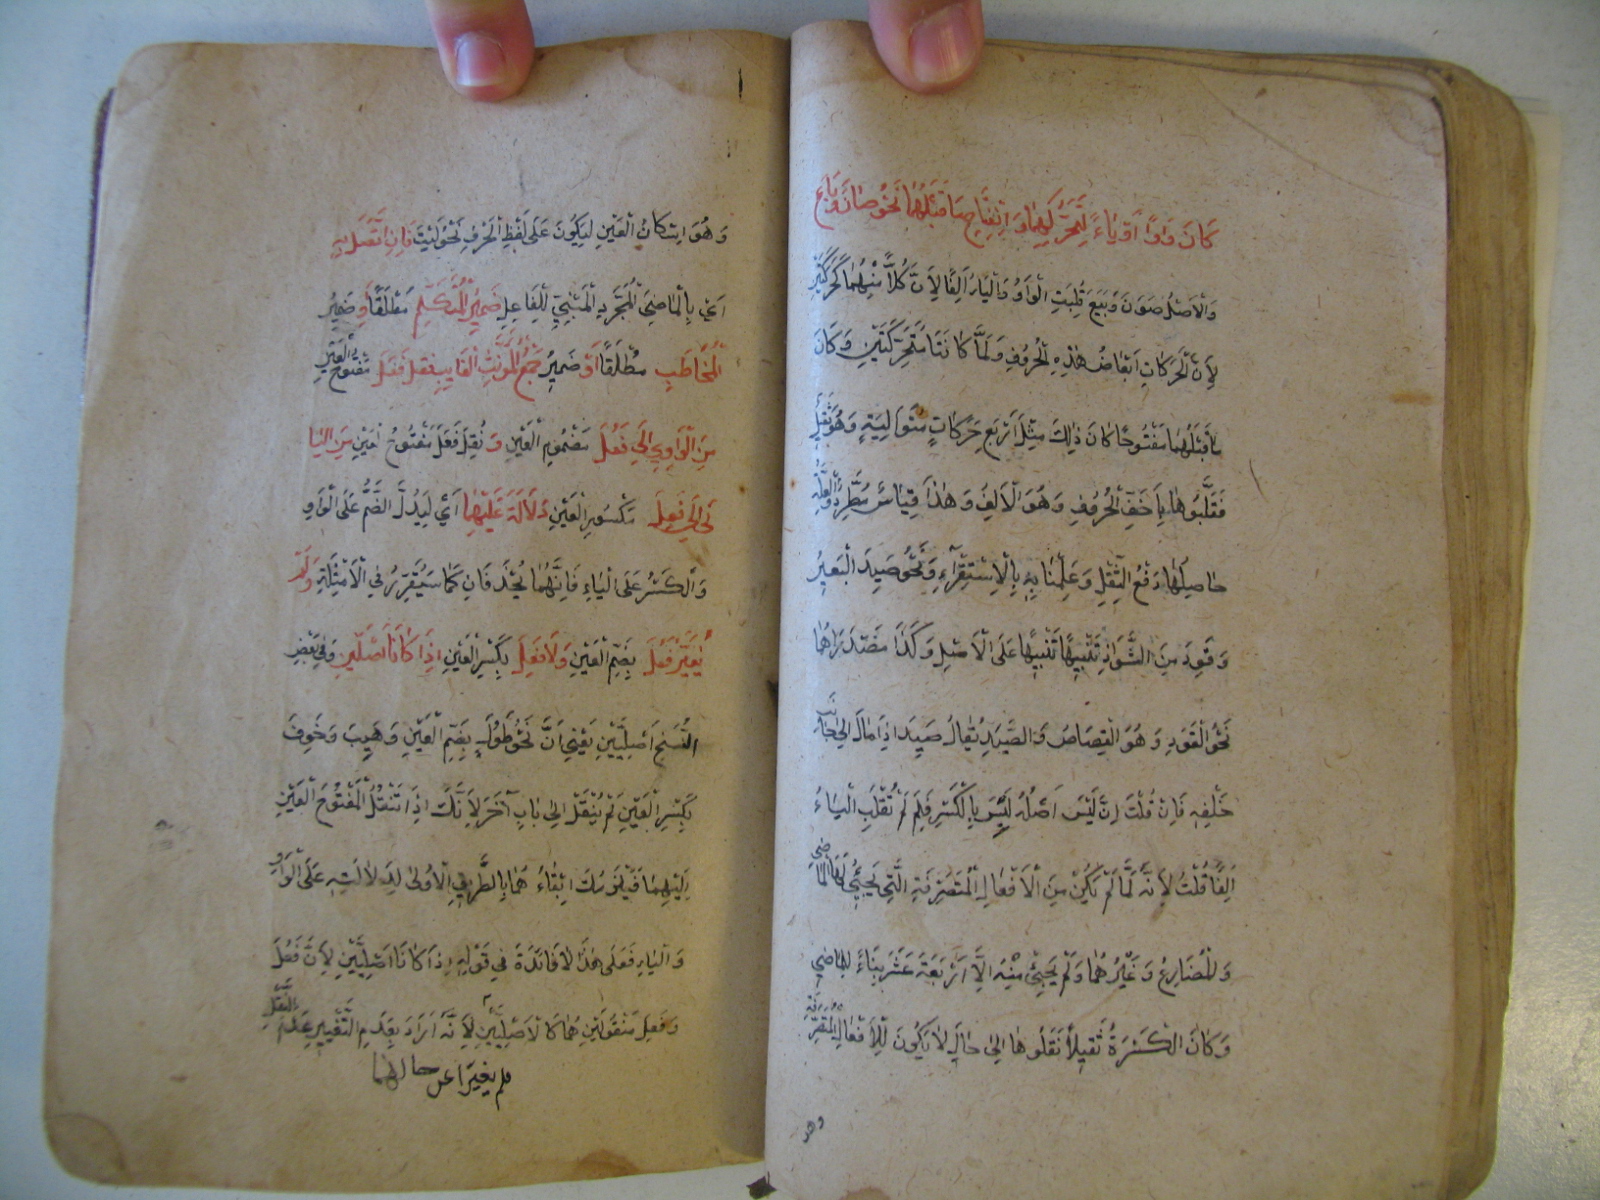 كَانَ وَاوًا اَوْ يَاءً لِتَحَرُّكِهِمَا وَ اِنْفِتَاحِ مَا قَبْلَهُمَا نَحْوُ صَانَ وَبَاعَ
وَالْاَصْلُ صَوَنَ وَبَيَعَ قُلِبَتِ الْوَاوُ وَالْيَاءُ اَلِفًا لِاَنَّ كُلًّا مِنْهُمَا كَحَرَكَتَيْنِ
لِاَنَّ الْحَرَكَاتِ اَبْعَاضُ هٰذِهِ الْحُرُوفِ وَلَمَّا كَانَتَا مُتَحَرِّكَتَيْنِ وَكَانَ
مَا قَبْلَهُمَا مَفْتُوحًا كَانَ ذٰلِكَ مِثْلَ اَرْبَعِ حَرَكَاتٍ مُتَوَالِيَةٍ وَهُوَ ثَقِيلٌ
فَقَلَبُوهَا بِاَخَفِّ الْحُرُوفِ وَهُوَ الْاَلِفُ وَهٰذَا قِيَاسٌ مُطَّرِدٌ وَالْعِلَّةُ
حَاصِلُهَا دَفْعُ الثِّقَلِ وَعَلِمْنَا بِهِ بِالْاِسْتِقْرَاءِ وَنَحْوُ صَيِدَ الْبَعِيرُ
وَقَوَدَ مِنَ الشَّوَاذِّ تَنْبِيهًا تَنْبِيهًا عَلَى الْاَصْلِ وَكَذَا مَصْدَرَاهُمَا
نَحْوُ الْقَوَدِ وَهُوَ الْقِصَاصُ وَالصَّيَدِ يُقَالُ صَيِدَ اِذَا مَالَ اِلَى جَانِبِ
خَلْفِهِ فَاِنْ قُلْتَ اِنَّ لَيْسَ اَصْلُهُ لَيِسَ بِالْكَسْرِ فَلِمَ لَمْ تُقْلَبِ الْيَاءُ
اَلِفًا قُلْتُ لِاَنَّهُ لَمَّا لَمْ يَكُنْ مِنَ الْاَفْعَالِ الْمُتَصَرِّفَةِ الَّتِي يَجِيئُ لَهَا الْمَاضِي
وَالْمُضَارِعُ وَغَيْرُهُمَا وَلَمْ يَجِئْ مِنْهُ اِلَّا اَرْبَعَةَ عَشَرَ بِنَاءً لِلْمَاضِي
وَكَانَ الْكَسْرَةُ ثَقِيلًا نَقَلُوهَا اِلَى حَالٍ لَا يَكُونُ لِلْاَفْعَالِ الْمُتَصَرِّفَةِ
وهو
وَهُوَ اِسْكَانُ الْعَيْنِ لِيَكُونَ عَلَى لَفْظِ الْحَرْفِ نَحْوُ لَيْتَ فَاِنِ اتَّصَلَ بِهِ
اَيْ بِالْمَاضِي الْمُجَرَّدِ الْمَبْنِيِّ لِلْفَاعِلِ ضَمِيرُ الْمُتَكَلِّمِ مُطْلَقًا وَضَمِيرُ
الْمُخَاطَبِ مُطْلَقًا اَوْ ضَمِيرُ جَمْعِ الْمُؤَنَّثِ الْغَائِبِ نُقِلَ فَعَلَ مَفْتُوحُ الْعَيْنِ
مِنَ الْوَاوِيِّ اِلَى فَعُلَ مَضْمُومِ الْعَيْنِ وَ نُقِلَ فَعَلَ مَفْتُوحُ الْعَيْنِ مِنَ الْيَا
ئِيِّ اِلَى فَعِلَ مَكْسُورِ الْعَيْنِ دَلَالَةً عَلَيْهِمَا اَيْ لِيَدُلَّ الضَّمُّ عَلَى الْوَاوِ
وَالْكَسْرُ عَلَى الْيَاءِ فَاِنَّهُمَا يُحْذَفَانِ كَمَا سَيُقَرَّرُ فِي الْاَمْثِلَةِ وَلَمْ
يُغَيَّرْ فَعُلَ بِضَمِّ الْعَيْنِ وَلَا فَعِلَ بِكَسْرِ الْعَيْنِ اِذَا كَانَا اَصْلَيْنِ وَفِي بَعْضِ
النُّسَخِ اَصْلِيَّيْنِ يَعْنِي اَنَّ نَحْوَ طَوُلَ بِضَمِّ الْعَيْنِ وَهَيِبَ وَخَوِفَ
بِكَسْرِ الْعَيْنِ لَمْ يُنْقَلْ اِلَى بَابٍ آخَرَ لِاَنَّكَ اِذَا تَنْقُلُ الْمَفْتُوحَ الْعَيْنِ
اِلَيْهِمَا فَيَلْزَمُكَ اِبْقَاءُ هُمَا بِالطَّرِيقِ الْاَوْلَى لِدَلَالَتِهِ عَلَى الْوَاوِ
وَالْيَاءِ فَعَلَى هٰذَا لَا فَائِدَةَ فِي قَوْلِهِ اِذَا كَانَا اَصْلِيَّيْنِ لِاَنَّ فَعُلَ
وَفَعِلَ مَنْقُولَيْنِ هُمَا كَالْاَصْلِيَّيْنِ لِاَنَّهُ اَرَادَ بِعَدَمِ التَّغْيِيرِ عَدَمَ النَّقْلِ
فلم يغيرا عن حالهما